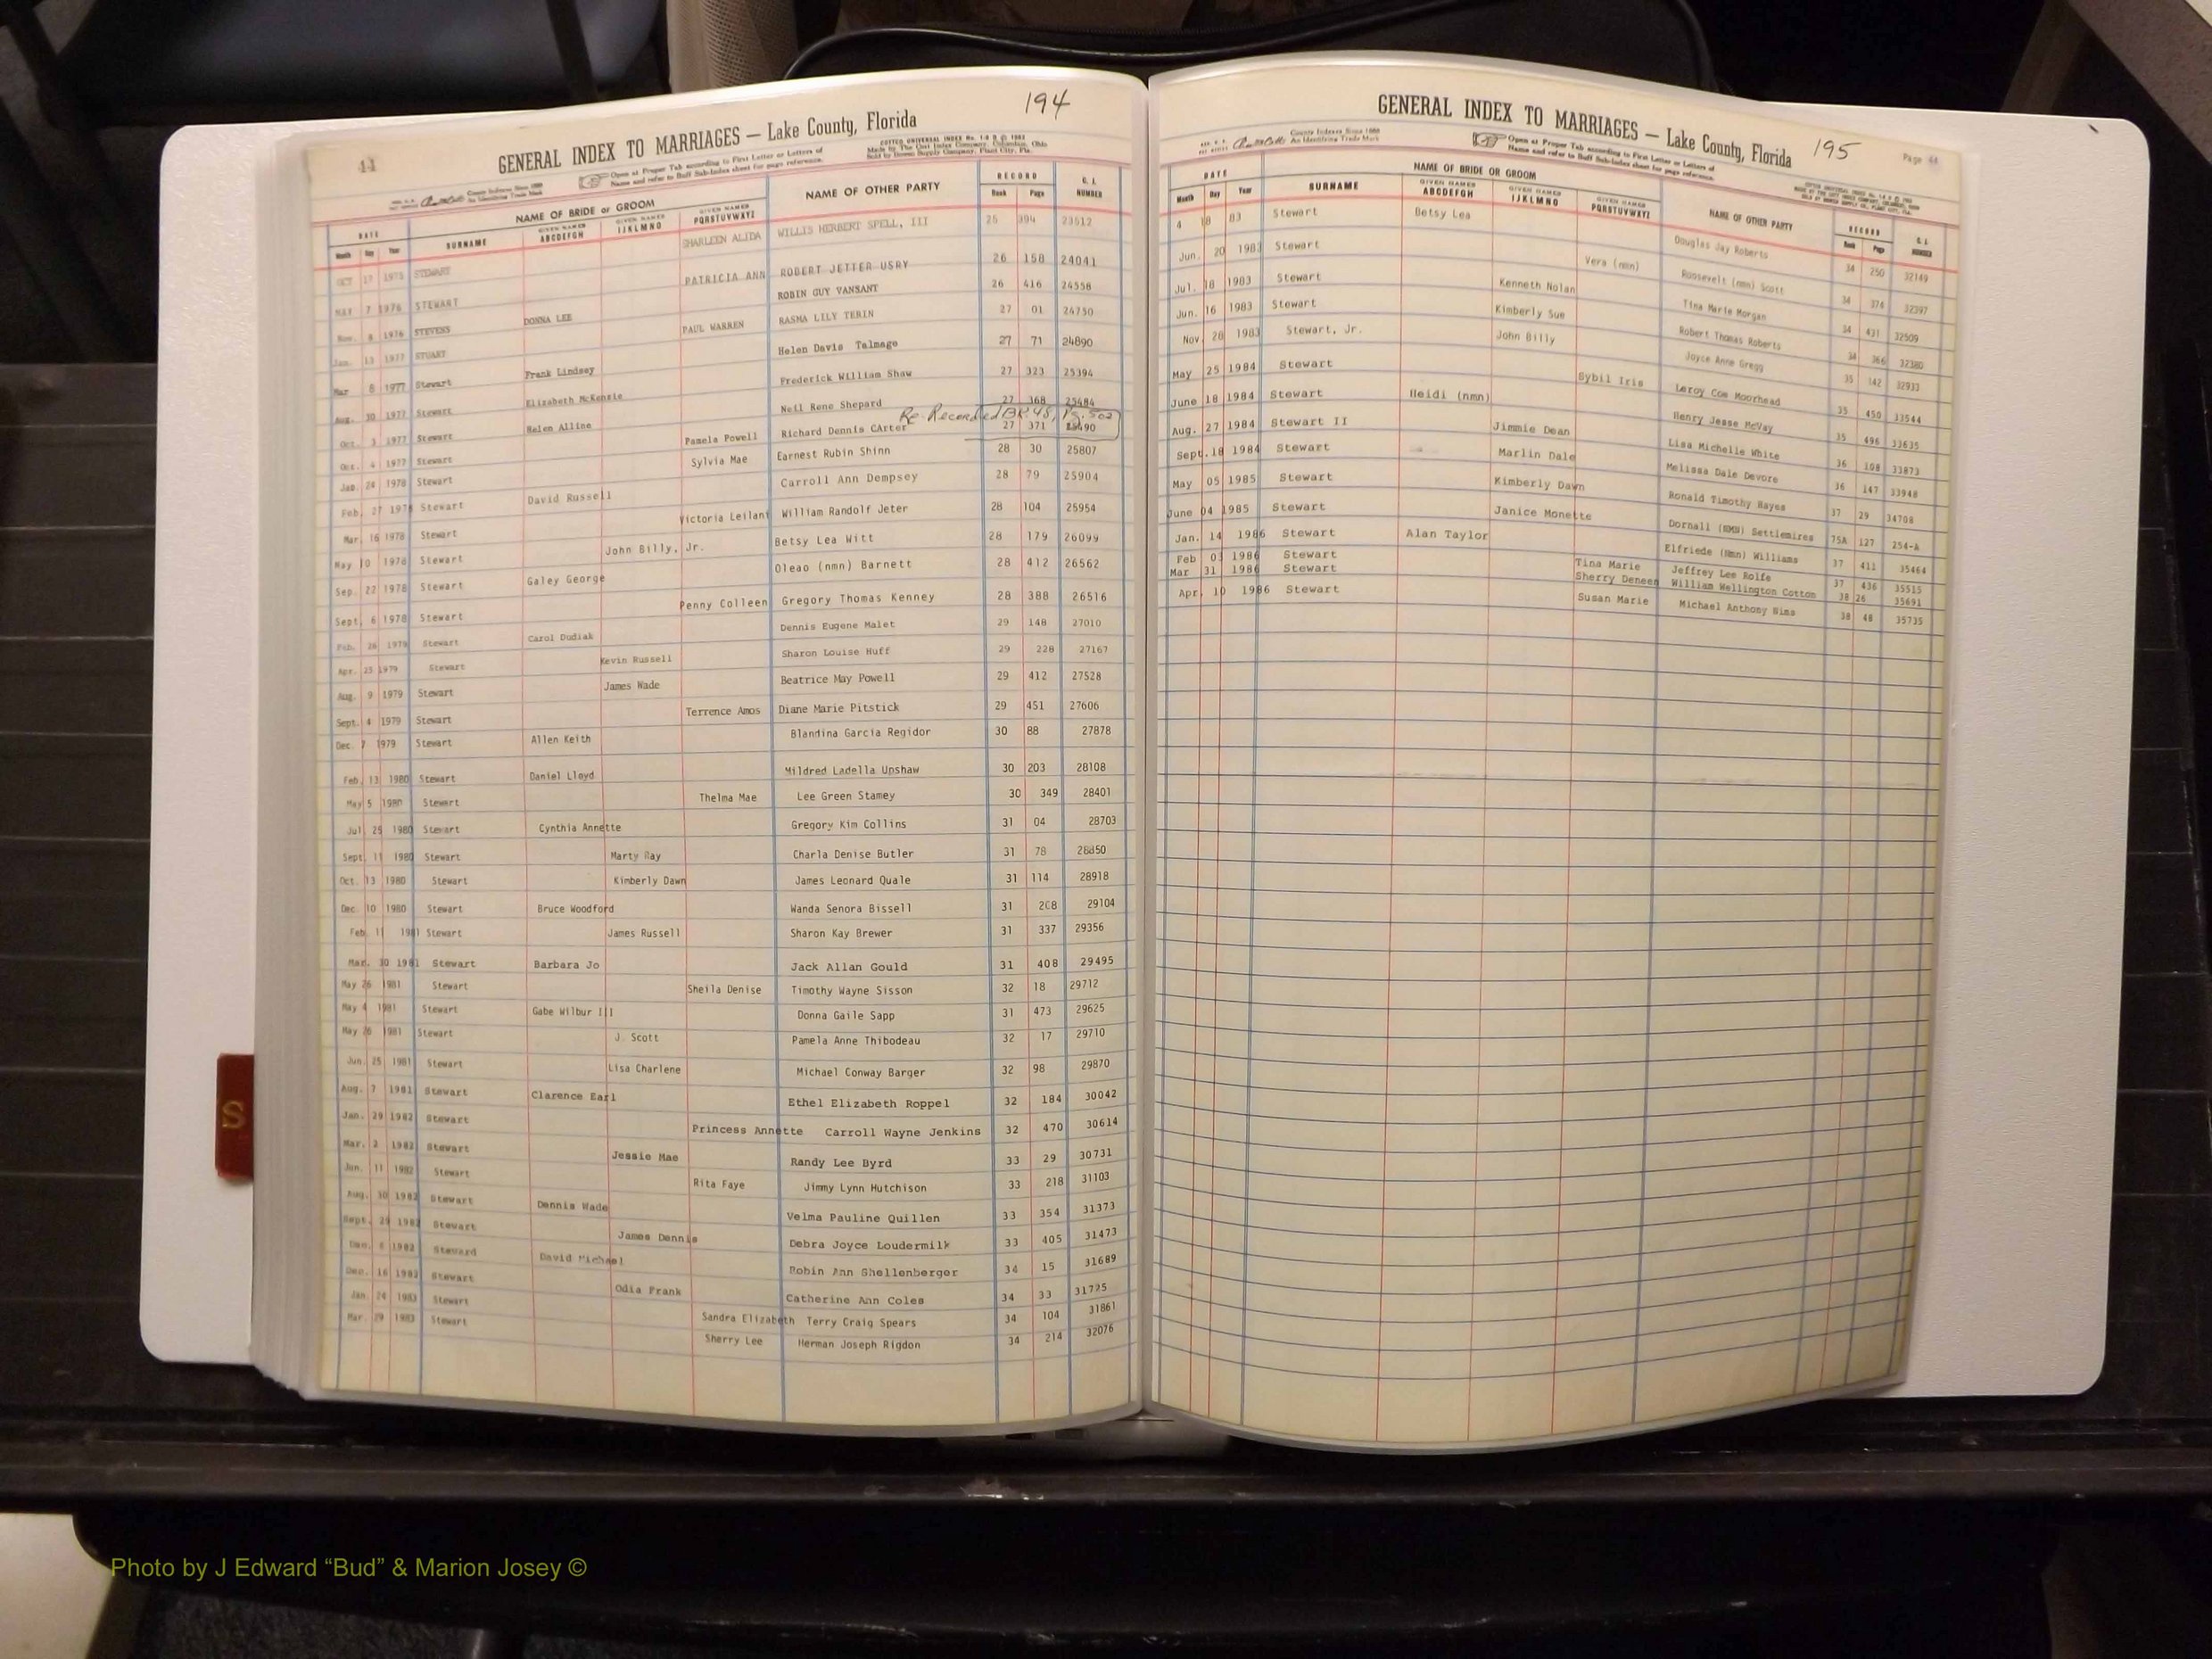 44
194
GENERAL INDEX TO MARRIAGES — Lake County, Florida
County Indexes Since 1888
An Identifying Trade Mark
Open at Proper Tab according to First Letter or Letters of
Name and refer to Buff Sub-Index sheet for page reference.
DATE NAME OF BRIDE or GROOM NAME OF OTHER PARTY RECORD C. I. NUMBER
Month Day Year SURNAME GIVEN NAMES ABCDEFGH GIVEN NAMES IJKLMNO GIVEN NAMES PQRSTUVWXYZ Book Page
OCT 17 1975 STEWART SHARLEEN ALIDA WILLIS HERBERT SPELL, III 25 394 23512
MAR 7 1976 STEWART PATRICIA ANN ROBERT JETTER USRY 26 158 24041
Nov. 8 1976 STEVENS DONNA LEE ROBIN GUY VANSANT 26 416 24558
Jan. 13 1977 STUART PAUL WARREN RASMA LILY TERIN 27 01 24750
Mar 8 1977 Stewart Frank Lindsey Helen Davis Talmage 27 71 24890
Aug. 30 1977 Stewart Elizabeth McKenzie Frederick William Shaw 27 323 25394
Oct. 3 1977 Stewart Helen Alline Neil Rene Shepard 27 368 25484
Re-Recorded BK. 48, Pg. 502
Oct. 4 1977 Stewart Pamela Powell Richard Dennis CArter 27 371 25490
Jan. 24 1978 Stewart Sylvia Mae Earnest Rubin Shinn 28 30 25807
Feb. 27 1978 Stewart David Russell Carroll Ann Dempsey 28 79 25904
Mar. 16 1978 Stewart Victoria Leilani William Randolf Jeter 28 104 25954
May 10 1978 Stewart John Billy, Jr. Betsy Lea Witt 28 179 26099
Sep. 22 1978 Stewart Galey George Oleao (nmn) Barnett 28 412 26562
Sept. 6 1978 Stewart Penny Colleen Gregory Thomas Kenney 28 388 26516
Feb. 26 1979 Stewart Carol Dudiak Dennis Eugene Malet 29 148 27010
Apr. 25 1979 Stewart Kevin Russell Sharon Louise Huff 29 226 27167
Aug. 9 1979 Stewart James Wade Beatrice May Powell 29 412 27528
Sept. 4 1979 Stewart Terrence Amos Diane Marie Pitstick 29 451 27606
Dec. 7 1979 Stewart Allen Keith Blandina Garcia Regidor 30 88 27878
Feb. 13 1980 Stewart Daniel Lloyd Mildred Ladella Upshaw 30 203 28108
May 5 1980 Stewart Thelma Mae Lee Green Stamey 30 349 28401
Jul 25 1980 Stewart Cynthia Annette Gregory Kim Collins 31 04 28703
Sept. 11 1980 Stewart Marty Ray Charla Denise Butler 31 78 28850
Oct. 13 1980 Stewart Kimberly Dawn James Leonard Quale 31 114 28918
Dec 10 1980 Stewart Bruce Woodford Wanda Senora Bissell 31 208 29104
Feb. 11 1981 Stewart James Russell Sharon Kay Brewer 31 337 29356
Mar. 30 1981 Stewart Barbara Jo Jack Allan Gould 31 408 29495
May 26 1981 Stewart Sheila Denise Timothy Wayne Sisson 32 18 29712
May 4 1981 Stewart Gabe Wilbur III Donna Gaile Sapp 31 473 29625
May 26 1981 Stewart J. Scott Pamela Anne Thibodeau 32 17 29710
Jun. 25 1981 Stewart Lisa Charlene Michael Conway Barger 32 98 29870
Aug. 7 1981 Stewart Clarence Earl Ethel Elizabeth Roppel 32 184 30042
Jan. 29 1982 Stewart Princess Annette Carroll Wayne Jenkins 32 470 30614
Mar. 2 1982 Stewart Jessie Mae Randy Lee Byrd 33 29 30731
Jun. 11 1982 Stewart Rita Faye Jimmy Lynn Hutchison 33 218 31103
Aug. 30 1982 Stewart Dennis Wade Velma Pauline Quillen 33 354 31373
Sept. 29 1982 Stewart James Dennis Debra Joyce Loudermilk 33 405 31473
Dec. 6 1982 Steward David Michael Robin Ann Shellenberger 34 15 31689
Dec. 16 1982 Stewart Odia Frank Catherine Ann Coles 34 33 31725
Jan. 24 1983 Stewart Sandra Elizabeth Terry Craig Spears 34 104 31861
Mar. 29 1983 Stewart Sherry Lee Herman Joseph Rigdon 34 214 32076
S
GENERAL INDEX TO MARRIAGES — Lake County, Florida
195
Page 44
County Indexes Since 1888
An Identifying Trade Mark
Open at Proper Tab according to First Letter or Letters of
Name and refer to Buff Sub-Index sheet for page reference.
DATE NAME OF BRIDE OR GROOM NAME OF OTHER PARTY RECORD C. I. NUMBER
Month Day Year SURNAME GIVEN NAMES ABCDEFGH GIVEN NAMES IJKLMNO GIVEN NAMES PQRSTUVWXYZ Book Page
4 18 83 Stewart Betsy Lea Douglas Jay Roberts 34 250 32149
Jun. 20 1983 Stewart Vera (nmn) Roosevelt (nmn) Scott 34 374 32397
Jul. 18 1983 Stewart Kenneth Nolan Tina Marie Morgan 34 431 32509
Jun. 16 1983 Stewart Kimberly Sue Robert Thomas Roberts 34 366 32380
Nov. 28 1983 Stewart, Jr. John Billy Joyce Anne Gregg 35 142 32933
May 25 1984 Stewart Sybil Iris Leroy Coe Moorhead 35 450 33544
June 18 1984 Stewart Heidi (nmn) Henry Jesse McVay 35 496 33635
Aug. 27 1984 Stewart II Jimmie Dean Lisa Michelle White 36 108 33873
Sept. 18 1984 Stewart Marlin Dale Melissa Dale Devore 36 147 33948
May 05 1985 Stewart Kimberly Dawn Ronald Timothy Hayes 37 29 34708
June 04 1985 Stewart Janice Monette Dornall (NMN) Settlemires 75A 127 254-A
Jan. 14 1986 Stewart Alan Taylor Elfriede (Nmn) Williams 37 411 35464
Feb 03 1986 Stewart Tina Marie Jeffrey Lee Rolfe 37 436 35515
Mar 31 1986 Stewart Sherry Deneen William Wellington Cotton 38 26 35691
Apr. 10 1986 Stewart Susan Marie Michael Anthony Sims 38 48 35735
Photo by J Edward “Bud” & Marion Josey ©